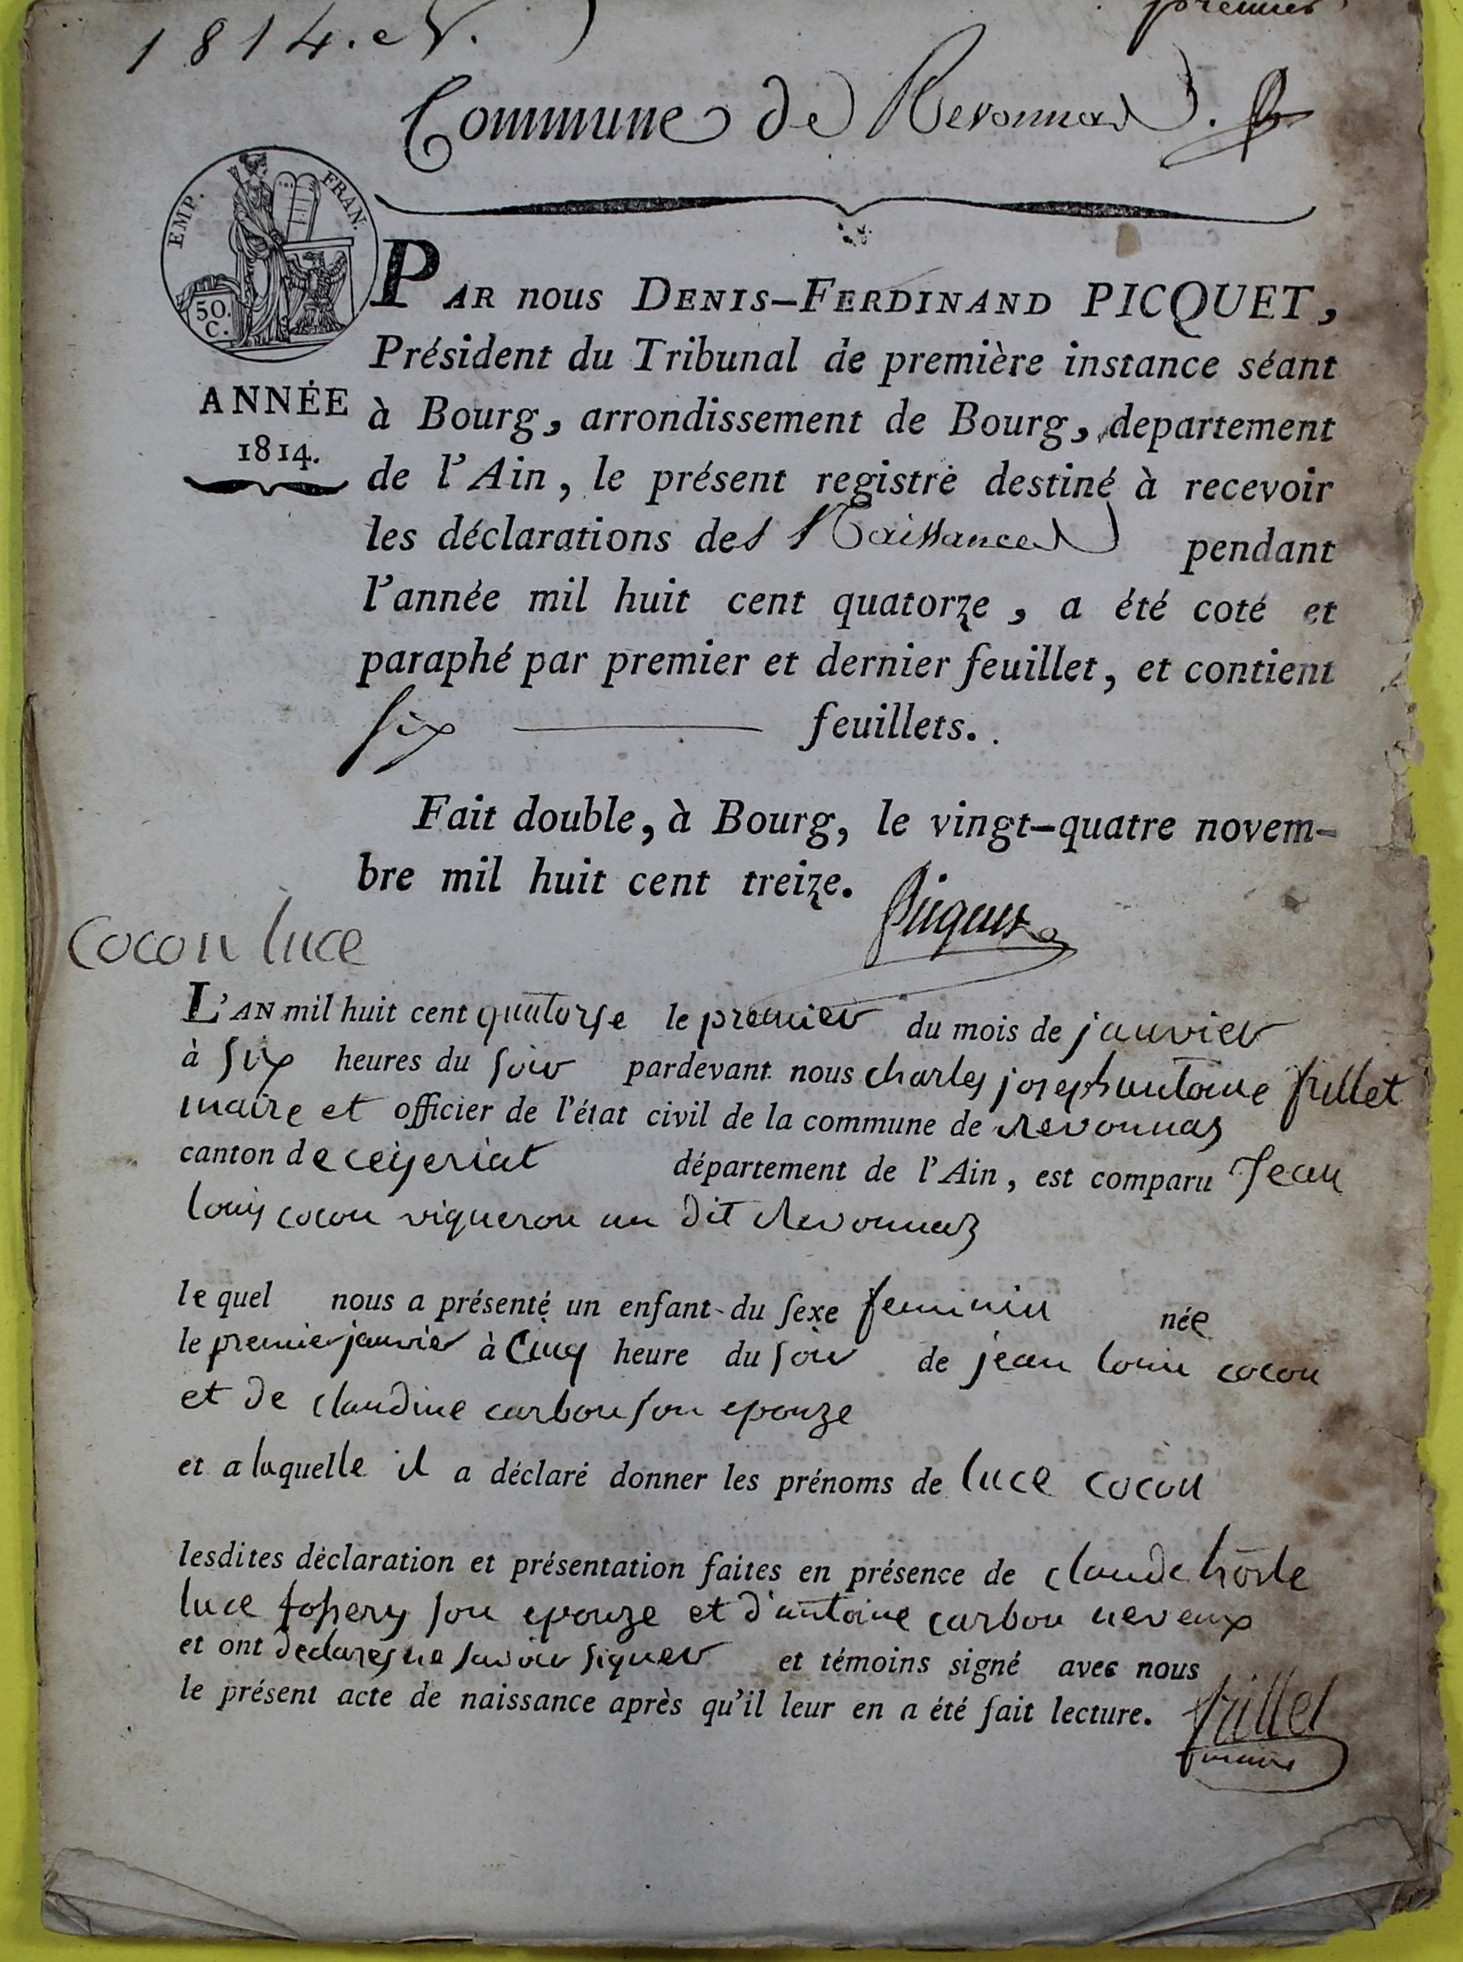 1814. N.
premier
Commune de Revonnas.
EMP. FRAN.
50.
C.
PAR nous DENIS-FERDINAND PICQUET,
Président du Tribunal de première instance séant
ANNÉE
1814.
à Bourg, arrondissement de Bourg, departement
de l'Ain, le présent registre destiné à recevoir
les déclarations des Naissances pendant
l'année mil huit cent quatorze, a été coté et
paraphé par premier et dernier feuillet, et contient
six feuillets.
Fait double, à Bourg, le vingt-quatre novem-
bre mil huit cent treize.
Picquet
Cocon luce
L'AN mil huit cent quatorse le premier du mois de janvier
à six heures du soir pardevant nous charles joseph antoine frillet
maire et officier de l'état civil de la commune de revonnas
canton de ceyseriat département de l'Ain, est comparu Jean
louis cocon vigneron au dit revonnas
le quel nous a présenté un enfant du sexe feminin née
le premier janvier à cinq heure du soir de jean louis cocon
et de claudine carbon son epouze
et a laquelle il a déclaré donner les prénoms de luce cocon
lesdites déclaration et présentation faites en présence de claude
luce son epouze et d'antoine carbon neveux
et ont declares ne savoir signer et témoins signé avec nous
le présent acte de naissance après qu'il leur en a été fait lecture.
frillet
maire